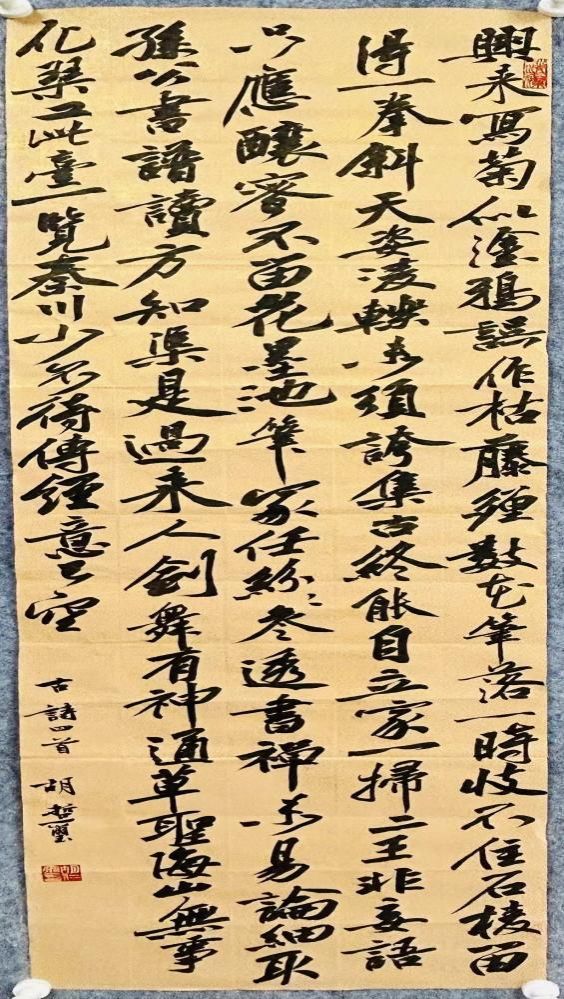 興來寫菊似塗鴉誤作枯藤纏數花筆落一時收不住石棱留
得一拳斜天姿凌轢未須誇集古終能自立家一掃二王非妄語
只應釀蜜不留花墨池筆冢任紛紛參透書禪未易論細取
孫公書譜讀方知渠是過來人劍舞有神通草聖海山無事
化琴工此臺一覽秦川小不待傳經意已空
古詩四首 胡哲璽